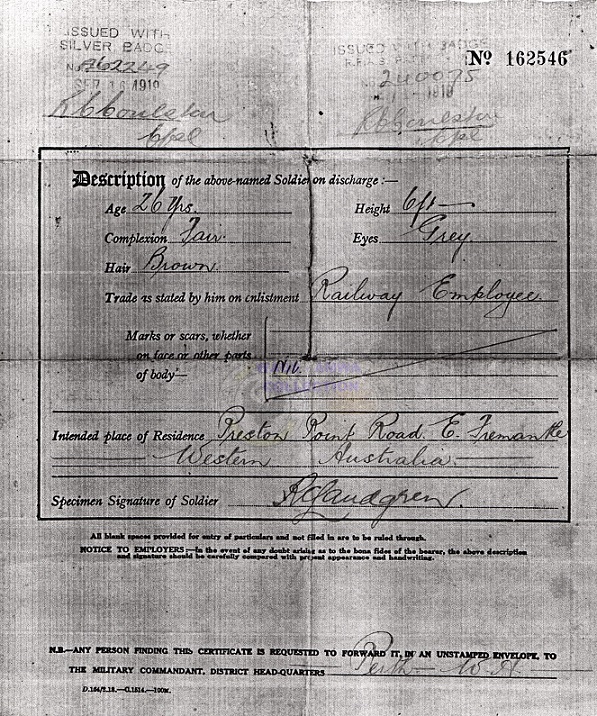 ISSUED WITH
SILVER BADGE
No A62249
SEP 1919
ISSUED WITH BADGE
240075
1919
No 162546
Cpl
Cpl
Description of the above-named Soldier on discharge :—
Age 26 Yrs. Height 6ft —
Complexion Fair. Eyes Grey.
Hair Brown.
Trade as stated by him on enlistment Railway Employee.
Marks or scars, whether
on face or other parts
of body— Nil.
Intended place of Residence Preston Point Road. E. Fremantle
Western Australia.
Specimen Signature of Soldier
All blank spaces provided for entry of particulars and not filled in are to be ruled through.
NOTICE TO EMPLOYERS:—In the event of any doubt arising as to the bona fides of the bearer, the above description
and signature should be carefully compared with present appearance and handwriting.
N.B.—ANY PERSON FINDING THIS CERTIFICATE IS REQUESTED TO FORWARD IT, IN AN UNSTAMPED ENVELOPE, TO
THE MILITARY COMMANDANT, DISTRICT HEAD-QUARTERS Perth W.A.
D.164/2.18.—C.1514.—100M.